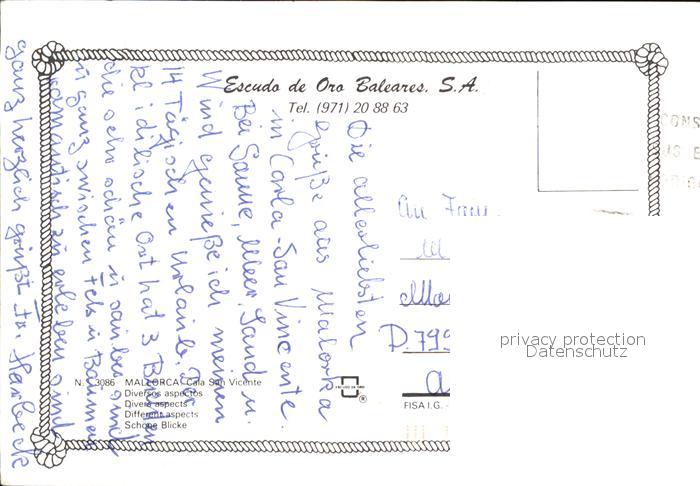 Escudo de Oro Baleares. S.A.
Tel. (971) 20 88 63
Die allerliebsten
Grüße aus Malorka
in Carla-San Vincente.
Bei Sonne, Meer, Sand u.
Wind genieße ich meinen
14 Tägischen Urlaub. Der
kl idilische Ort hat 3
die sehr schön u sauber sind
u ganz zwischen Fels u Bäumen
romantisch zu erleben sind
Ganz herzlich grüßt Fr. Harbeck
An Frau
D. 799
N.º 3086 MALLORCA Cala San Vicente
Diversos aspectos
Divers aspects
Different aspects
Schöne Blicke
ESCUDO DE ORO
®
FISA I.G. -
privacy protection
Datenschutz